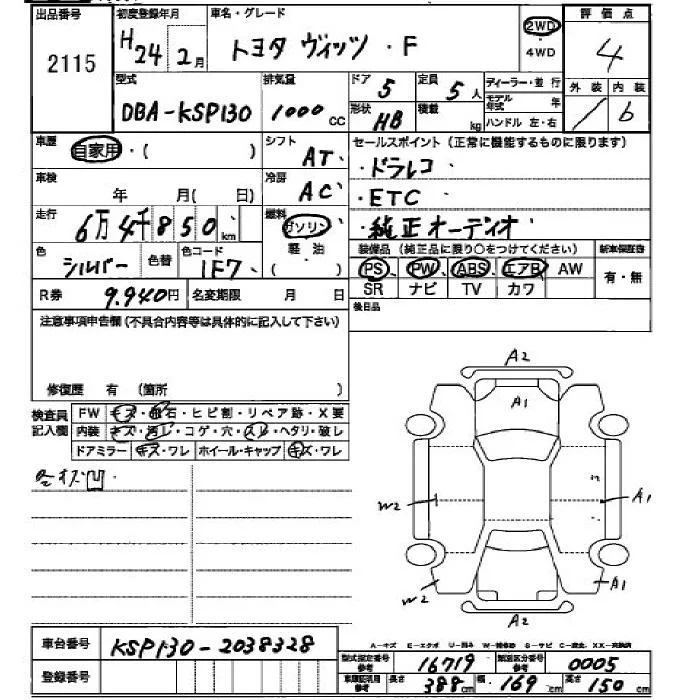 出品番号 初度登録年月 車名・グレード 2WD 評価点
2115 H24 2月 トヨタ ヴィッツ・F 4WD 4
型式 排気量 ドア 5 定員 5人 ディーラー・並行 外装 内装
DBA-KSP130 1000cc 形状 HB 積載 kg モデル年式 年 ハンドル 左・右 b
車歴 自家用・( ) シフト AT セールスポイント(正常に機能するものに限ります)
車検 年 月( 日) 冷房 AC ・ドラレコ
・ETC
走行 6万4千850km 燃料 ガソリン ・純正オーディオ
軽油
色 シルバー 色替 色コード 1F7 ( ) 装備品(純正品に限り○をつけてください) 新車保証書
PS PW ABS エアB AW 有・無
R券 9.940円 名変期限 月 日 SR ナビ TV カワ
後日品
注意事項申告欄(不具合内容等は具体的に記入して下さい)
修復歴 有 (箇所 )
検査員記入欄 FW キズ・飛石・ヒビ割・リペア跡・X要
内装 キズ・汚れ・コゲ・穴・スレ・ヘタリ・破レ
ドアミラー キズ・ワレ ホイール・キャップ キズ・ワレ
A2
A1
W2 A1
W2 A1
A2
車台番号 KSP130-2038328
登録番号
型式指定番号参考 16719 類別区分番号参考 0005
車庫証明用参考 長さ 388cm 幅 169cm 高さ 150cm